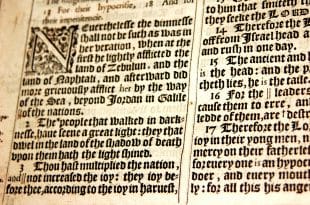 13 For their hypocrisie, 18 And for
their impenitencie.
NEuerthelesse the dimnesse
shall not be such as was in
her vexation, when at the
first he lightly afflicted the
land of Zebulun, and the
land of Naphtali, and afterward did
more grieuously afflict her by the way
of the Sea, beyond Jordan in Galile
of the nations.
2 The people that walked in dark-
nesse, haue seene a great light: they that
dwel in the land of the shadow of death
vpon them hath the light shined.
3 Thou hast multiplied the nation,
and not increased the ioy: they ioy be-
fore thee, according to the ioy in haruest,
him that smiteth
they seeke the LORD
14 Therefore the L
off from Israel head a
and rush in one day.
15 The ancient and
is the head: and the p
cheth lies, he is the taile.
16 For the leaders
cause them to erre, an
ledde of them, are destr
17 Therefore the Lo
ioy in their yong men, n
mercy on their fatherle
for euery one is an hypoc
doer, and euery mout
ly: for all this his anger